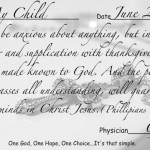 My Child Date June 2
be anxious about anything, but in
and supplication with thanksgiv
made known to God. And the p
asses all understanding, will guar
minds in Christ Jesus. (Philippians
Physician
One God, One Hope, One Choice...It's that simple.